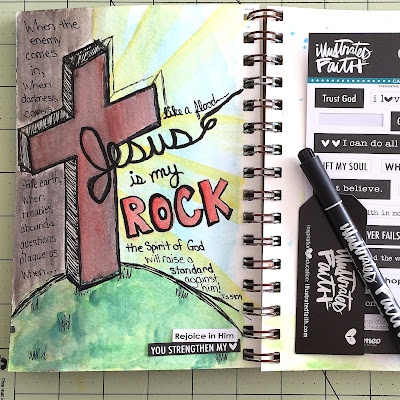 When the
enemy
comes
in,
when
darkness
covers
the earth,
when
troubles
abound,
questions
plague us
When...
like a flood
Jesus
is my
ROCK
the Spirit of God
will raise a
standard
against
him!
Rejoice in Him
YOU STRENGTHEN MY
illustrated
FAITH
Trust God
i
I can do all
IFT MY SOUL
WH
t believe.
VER FAILS
illustrated
FAITH
illustrated
FAITH